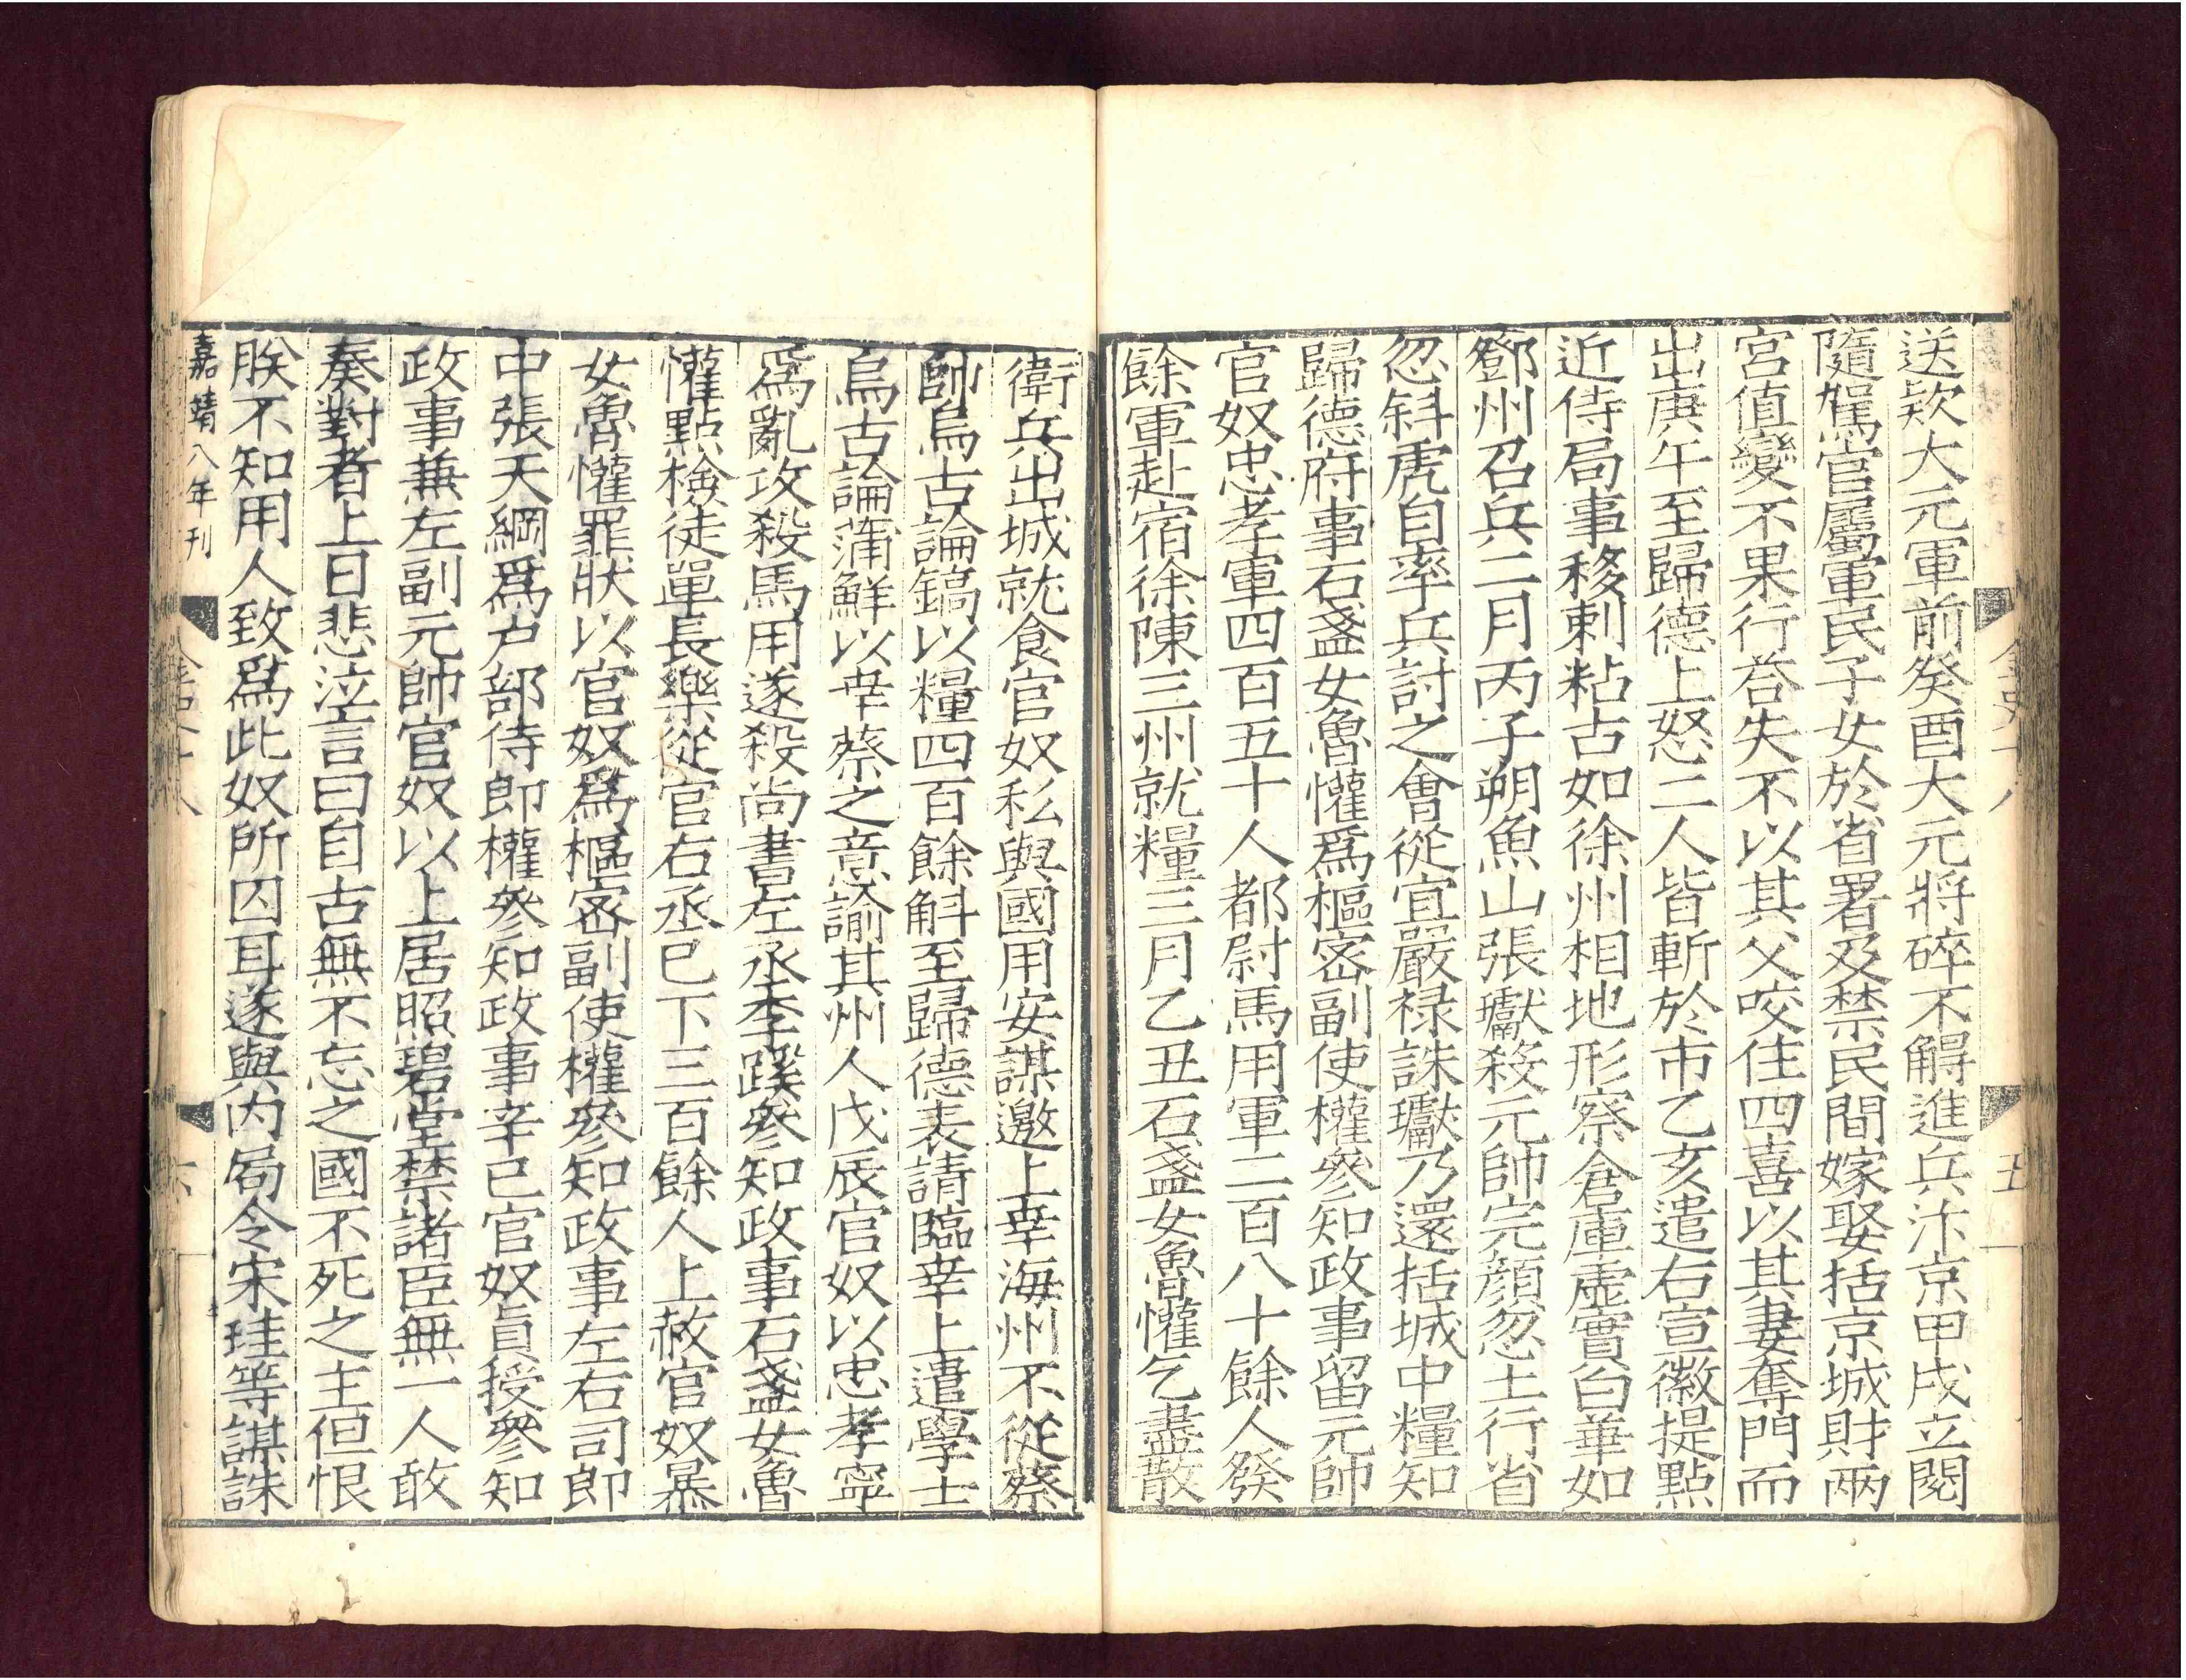 送欵大元軍前癸酉大元將碎不䚟進兵汴京甲戌立閱
隨駕官屬軍民子女於省署及禁民間嫁娶括京城財兩
宮值變不果行荅失不以其父咬住四喜以其妻奪門而
出庚午至歸德上怒二人皆斬於市乙亥遣右宣徽提點
近侍局事移剌粘古如徐州相地形察倉庫虛實白華如
鄧州召兵二月丙子朔魚山張瓛殺元帥完顏忽土行省
忽斜虎自率兵討之會從宜嚴禄誅瓛乃還括城中糧知
歸德府事石盞女魯懽爲樞密副使權參知政事留元帥
官奴忠孝軍四百五十人都尉馬用軍二百八十餘人發
餘軍赴宿徐陳三州就糧三月乙丑石盞女魯懽乞盡散
金史十八
五
衛兵出城就食官奴私與國用安謀邀上幸海州不從蔡
帥烏古論鎬以糧四百餘斛至歸德表請臨幸上遣學士
烏古論蒲鮮以幸蔡之意諭其州人戊辰官奴以忠孝軍
爲亂攻殺馬用遂殺尚書左丞李蹊參知政事石盞女魯
懽點檢徒單長樂從官右丞已下三百餘人上赦官奴暴
女魯懽罪狀以官奴爲樞密副使權參知政事左右司郎
中張天綱爲户部侍郎權參知政事辛巳官奴眞授參知
政事兼左副元帥官奴以上居照碧堂禁諸臣無一人敢
奏對者上日悲泣言曰自古無不忘之國不死之主但恨
朕不知用人致爲此奴所囚耳遂與内局令宋珪等謀誅
嘉靖八年刊
金史十八
六